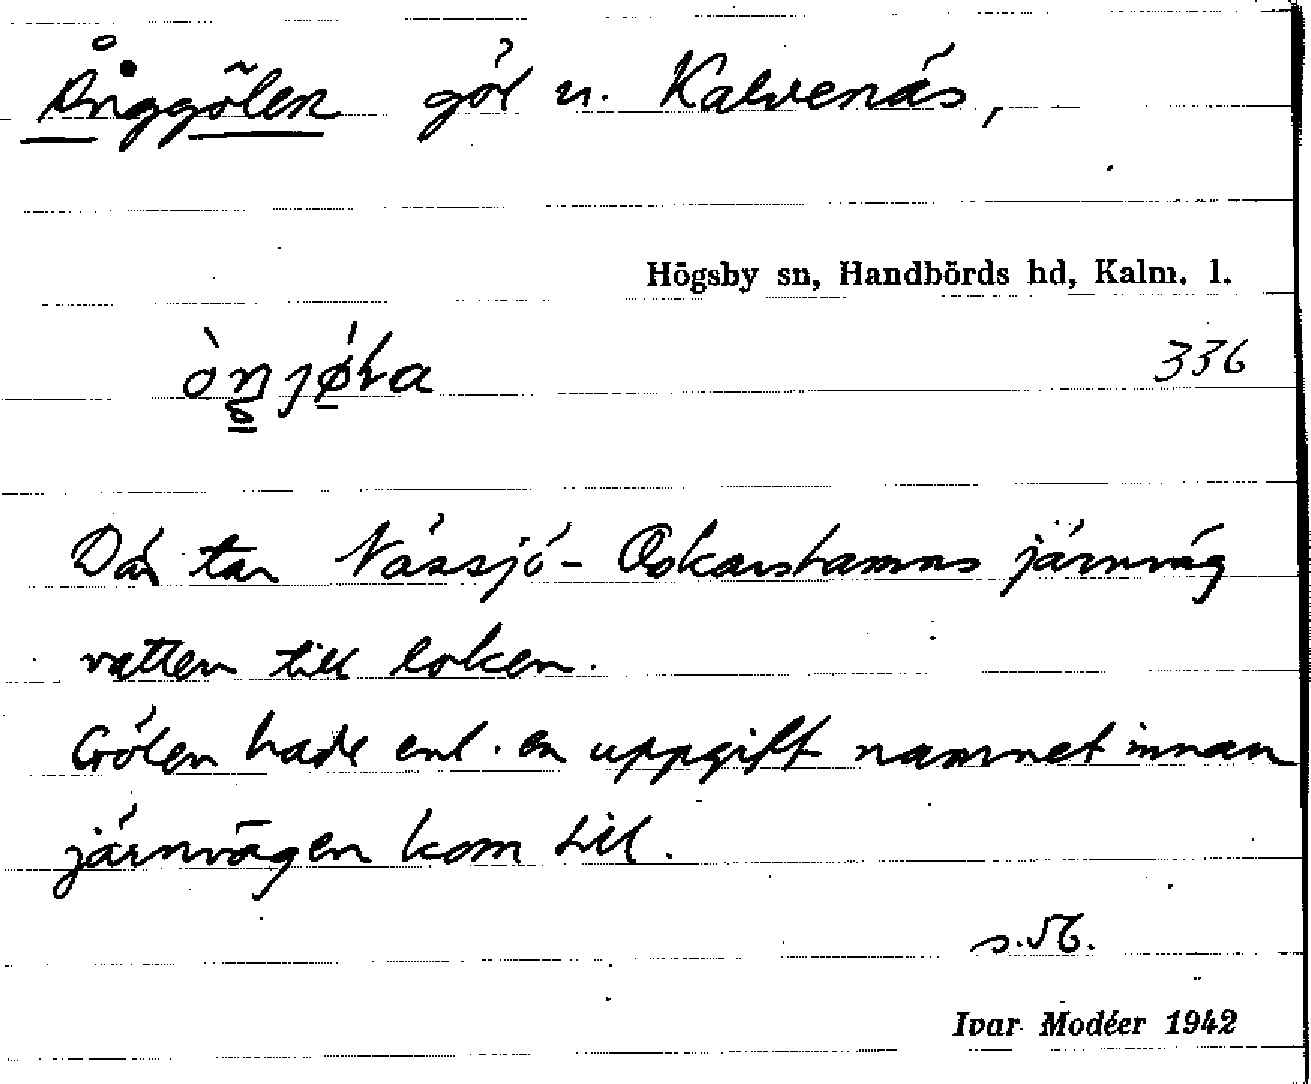 Ånggölen göl n. Kalvenäs,
Högsby sn, Handbörds hd, Kalm. l.
336
Där tar Nässjö-Oskarshamns järnväg
vatten till loken.
Gölen hade enl. en uppgift namnet innan
järnvägen kom till.
Ivar Modéer 1942